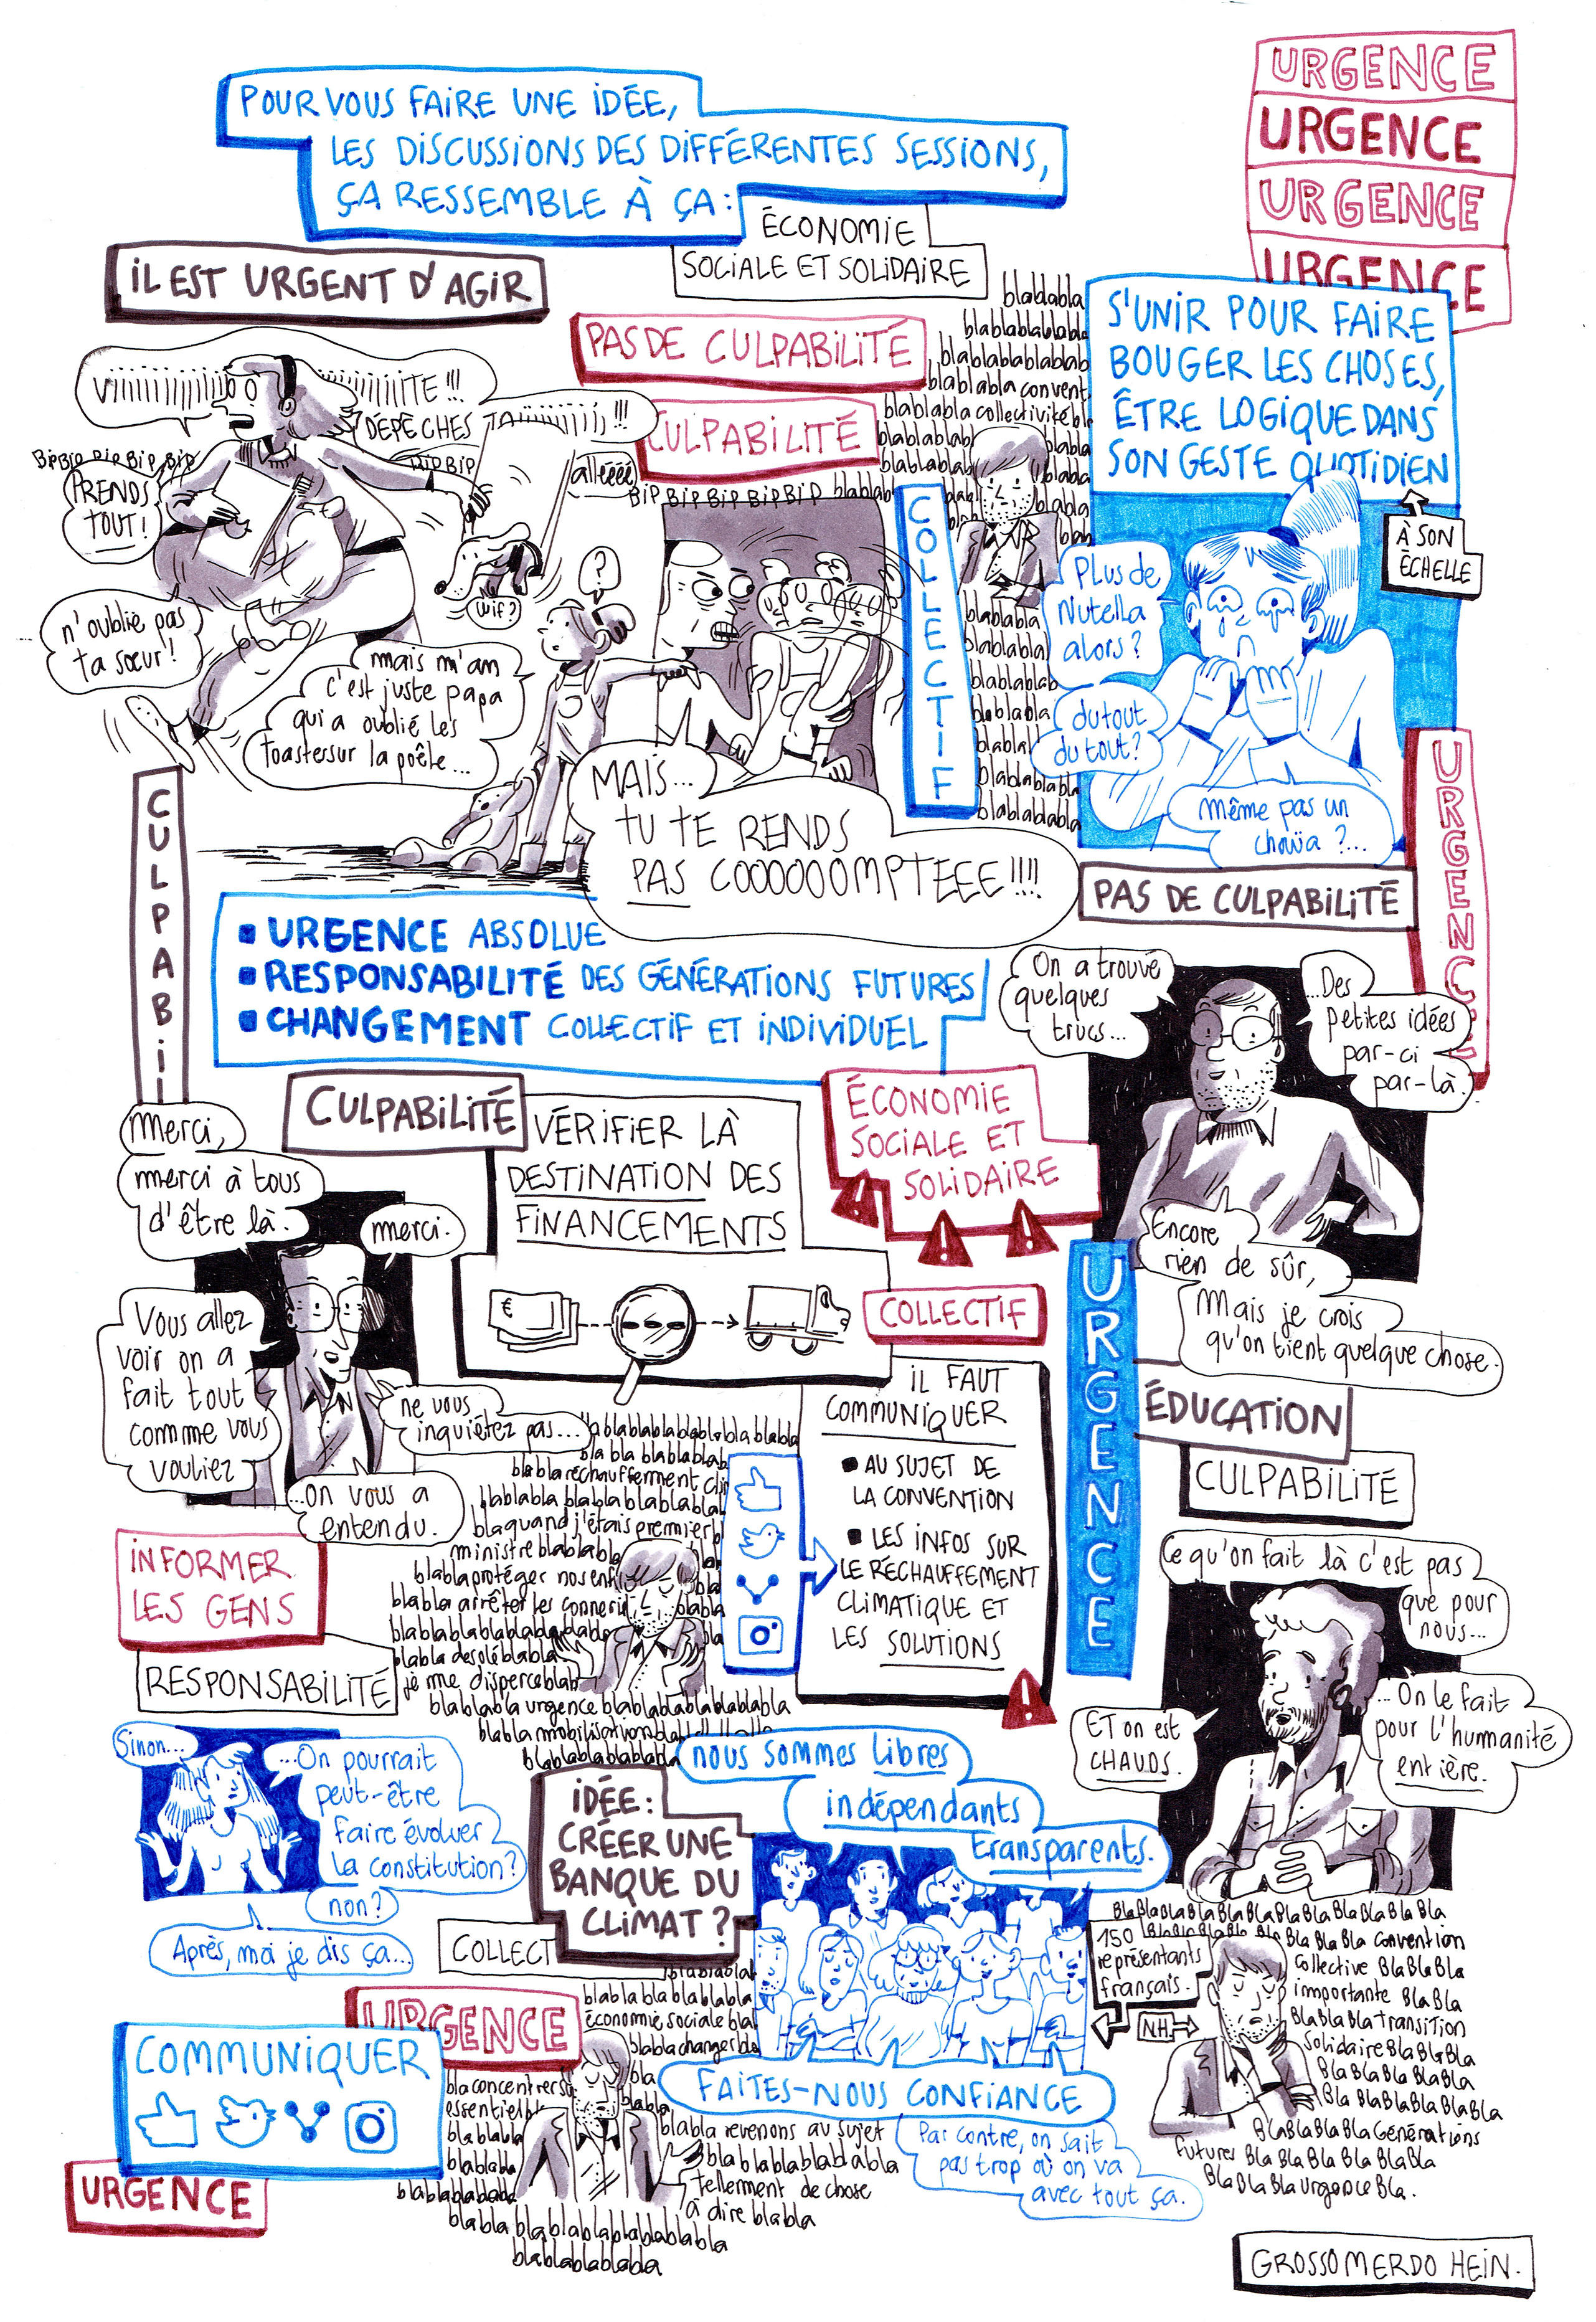 POUR VOUS FAIRE UNE IDÉE,
LES DISCUSSIONS DES DIFFÉRENTES SESSIONS,
ÇA RESSEMBLE À ÇA :
URGENCE
URGENCE
URGENCE
URGENCE
ÉCONOMIE
SOCIALE ET SOLIDAIRE
IL EST URGENT D'AGIR
PAS DE CULPABILITÉ
CULPABILITÉ
blablabla
blablablablabla
blablablablablab
blablabla convent
blablabla collectivité bl
blablablab
blabla
blablablab
blabla
BIP BIP BIP BIP BIP blablab
S'UNIR POUR FAIRE
BOUGER LES CHOSES,
ÊTRE LOGIQUE DANS
SON GESTE QUOTIDIEN
À SON
ÉCHELLE
DÉPÊCHES
BIP BIP BIP BIP BIP
BIP BIP
allééé
PRENDS
TOUT !
wif ?
?
n'oublie pas
ta sœur !
mais m'am
c'est juste papa
qui a oublié les
toasts sur la poêle...
MAIS...
TU TE RENDS
PAS COOOOOOMPTEEE !!!!
COLLECTIF
blablabla
blablabl
blablablab
blablabla
blablabl
blablablabla
blablablabla
Plus de
Nutella
alors ?
du tout
du tout ?
même pas un
chouïa ?...
URGENCE
CULPABIL
PAS DE CULPABILITÉ
▪ URGENCE ABSOLUE
▪ RESPONSABILITÉ DES GÉNÉRATIONS FUTURES
▪ CHANGEMENT COLLECTIF ET INDIVIDUEL
On a trouvé
quelques
trucs...
...Des
petites idées
par-ci
par-là.
Encore
rien de sûr,
Mais je crois
qu'on tient quelque chose.
CULPABILITÉ
VÉRIFIER LÀ
DESTINATION DES
FINANCEMENTS
€
ÉCONOMIE
SOCIALE ET
SOLIDAIRE
! ! !
COLLECTIF
URGENCE
Merci,
merci à tous
d'être là.
merci.
Vous allez
voir on a
fait tout
comme vous
vouliez
ne vous
inquiétez pas...
...on vous a
entendu.
IL FAUT
COMMUNIQUER
▪ AU SUJET DE
LA CONVENTION
▪ LES INFOS SUR
LE RÉCHAUFFEMENT
CLIMATIQUE ET
LES SOLUTIONS
!
ÉDUCATION
CULPABILITÉ
bla bla blablablab
blabla réchauffement clim
blablabla blablablablabl
bla quand j'étais premier b
ministre blablabla
blabla protéger nos enf
blabla arrêter les connerie
blablablablablablablabla
blabla desolé blabla
je me disperce blab
blablabla urgence blablablablablabla
blabla mobilisation bla
blablablablabla
INFORMER
LES GENS
RESPONSABILITÉ
Ce qu'on fait là c'est pas
que pour
nous...
...On le fait
pour l'humanité
entière.
ET on est
CHAUDS.
Sinon...
...On pourrait
peut-être
faire évoluer
la constitution ?
non ?
Après, moi je dis ça...
IDÉE :
CRÉER UNE
BANQUE DU
CLIMAT ?
COLLECT
nous sommes libres
indépendants
transparents.
FAITES-NOUS CONFIANCE
Par contre, on sait
pas trop où on va
avec tout ça.
150
représentants
français.
NH
BlaBlaBlaBlaBlaBlaBlaBlaBlaBlaBla
Bla Bla Bla convention
collective BlaBlaBla
importante BlaBla
BlaBlaBla transition
solidaire BlaBlaBla
BlaBlaBlaBlaBla
Bla BlaBlaBlaBlaBla
BlaBlaBlaBla Générations
futures Bla Bla Bla Bla BlaBla
BlaBlaBla urgence Bla.
URGENCE
COMMUNIQUER
URGENCE
blablabla
blablablablablabla
économie sociale bla
blabla change bla
bla
bla concentrer su
essentiel b
blablabla
blablabla
blabla revenons au sujet
blablablablablabla
tellement de chose
à dire blabla
blabla blablablablablablabla
blablablablabla
GROSSOMERDO HEIN.